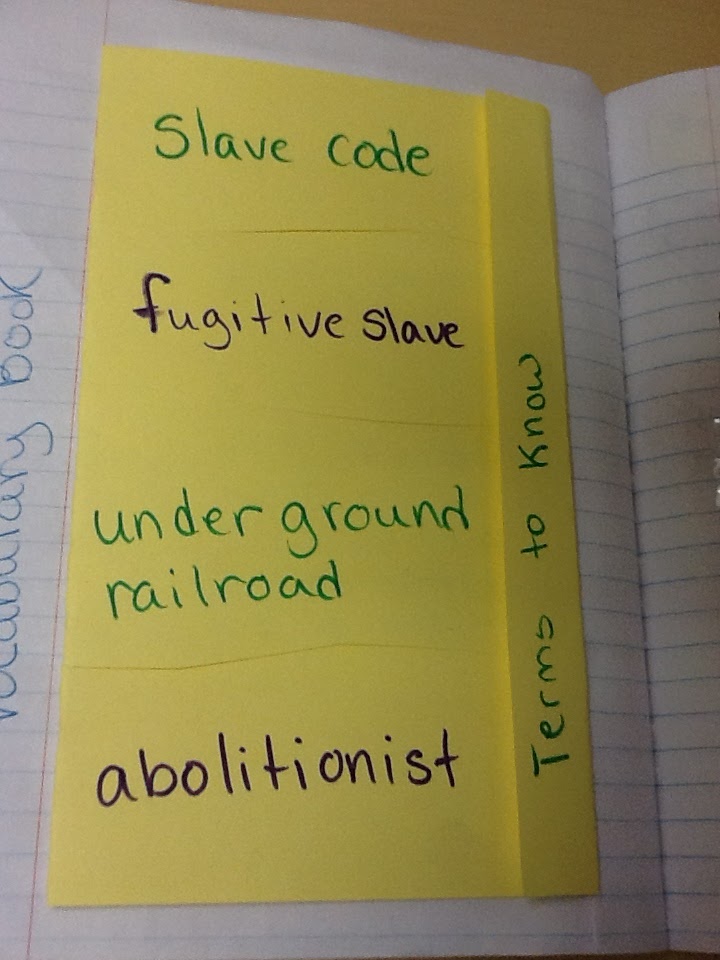 Slave code
fugitive slave
underground
railroad
abolitionist
Terms to Know
Vocabulary Book